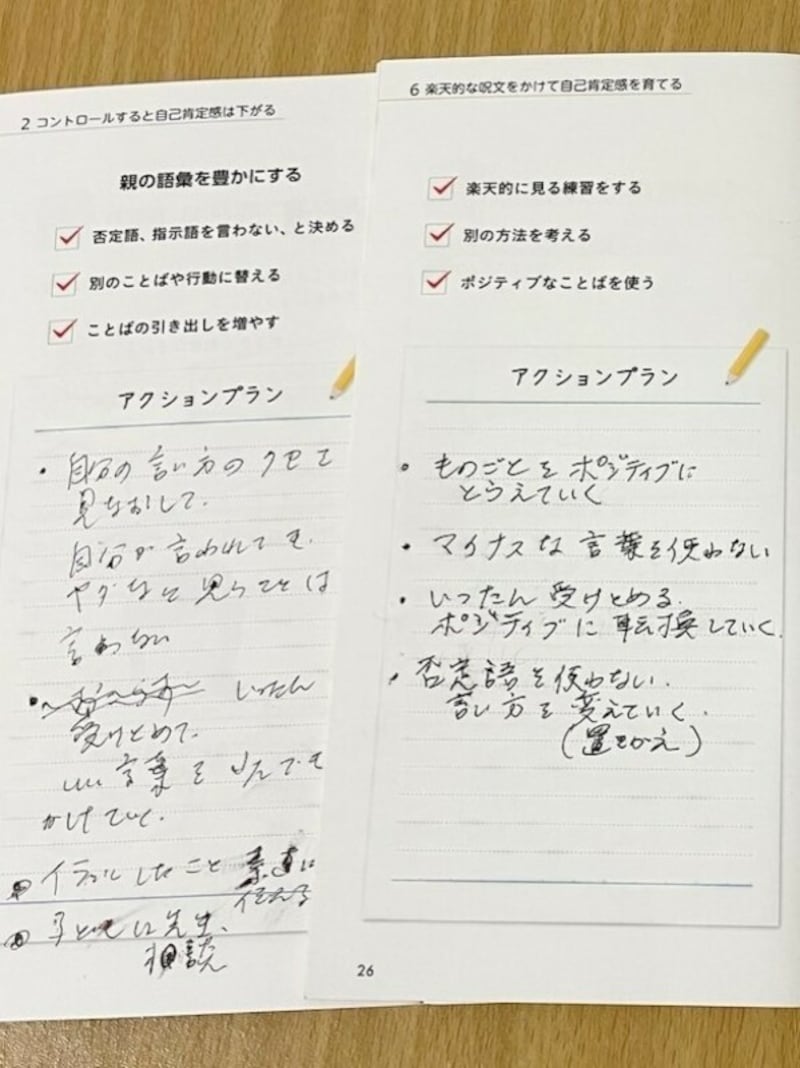 2 コントロールすると自己肯定感は下がる
親の語彙を豊かにする
否定語、指示語を言わない、と決める
別のことばや行動に替える
ことばの引き出しを増やす
アクションプラン
・自分の言い方のクセを
見なおして、
自分が言われても、
ヤダなと思うことは
言わない
・いったん
受けとめて、
いい言葉を
かけていく。
イラッとしたこと 素直に
伝える
子どもに先生、
相談
6 楽天的な呪文をかけて自己肯定感を育てる
楽天的に見る練習をする
別の方法を考える
ポジティブなことばを使う
アクションプラン
・ものごとをポジティブに
とらえていく
・マイナスな言葉を使わない
・いったん受けとめる。
ポジティブに転換していく。
・否定語を使わない。
言い方を変えていく。
(置きかえ)
26